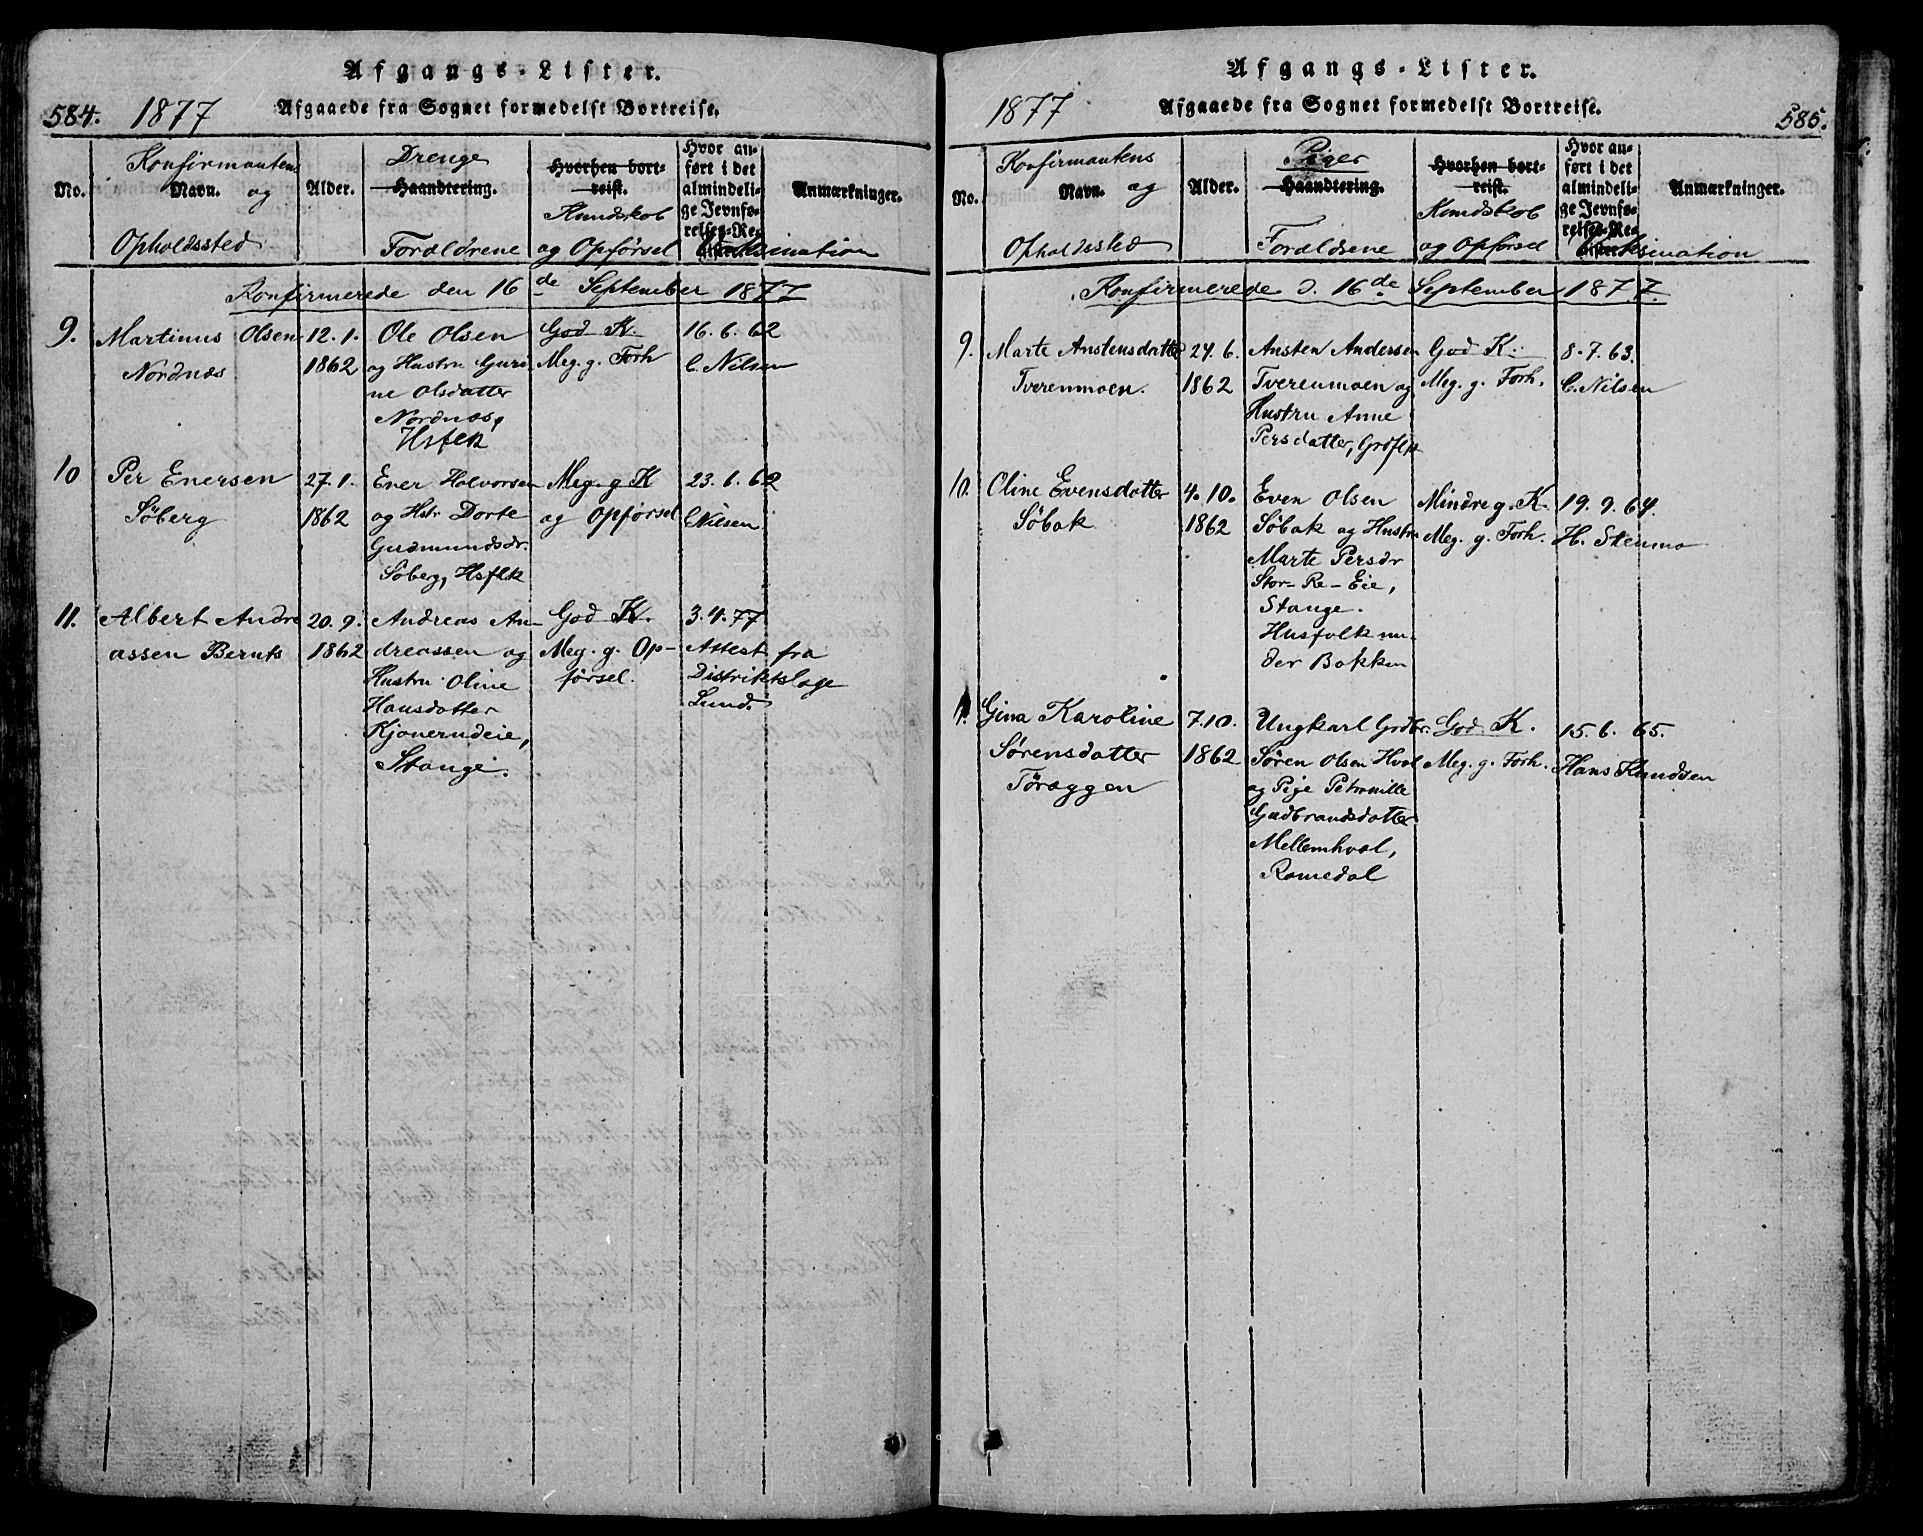 Afgangs-Lister.
584. 1877 Afgaaede fra Sognet formedelst Bortreise.
No. Konfirmantens Navn. og Opholdssted
Alder.
Drenge Haandtering. Forældrene
Hvorhen bortreist. Kundskab og Opførsel
Hvor anført i det almindelige Jevnførelses-Re
Vaksination
Anmærkninger.
Konfirmerede den 16de September 1877
9. Martinus Olsen 12.1. Ole Olsen God K. 16.6.62
Nordnæs 1862 og Hustru Guri Meg. g. Forh C. Nilsen
ne Olsdatter
Nordnæs,
Hsfolk
10 Per Enersen 27.1. Ener Halvorsen Meg. g K 23.6.62
Söberg 1862 og Hstr Dorte og Opførsel C Nilsen
Gudmundsdr.
Söberg, Hsflk
11. Albert Andre 20.9. Andreas An- God K. 3.4.77
assen Bernts 1862 dreassen og Meg. g. Op- Attest fra
Hustru Oline førsel. Distriktslæge
Hansdatter Lund.
Kjonerudeie,
Stange.
Afgangs-Lister.
1877 Afgaaede fra Sognet formedelst Bortreise. 585.
No. Konfirmantens Navn. og Opholdssted
Alder.
Piger Haandtering. Forældrene
Hvorhen bortreist. Kundskab og Opførsel
Hvor anført i det almindelige Jevnførelses-Re
Vaksination
Anmærkninger.
Konfirmerede d. 16de September 1877.
9. Marte Anstensdatter 24.6. Ansten Andersen God K. 8.7.63.
Tverenmoen. 1862 Tverenmoen og Meg. g. Forh. C. Nilsen
Hustru Anne
Persdatter, Grdflk
10. Oline Evensdatter 4.10. Even Olsen Mindre g. K. 19.9.64.
Söbak 1862 Söbak og Hustru Meg. g. Forh. H. Stenmo
Marte Persdr
Stor-Re-Eie,
Stange.
Husfolk un-
der Bakken
11. Gina Karoline 7.10. Ungkarl Grdbr. God K. 15.6.65.
Sörensdatter 1862 Sören Olsen Hval Meg. g. Forh. Hans Knudsen
Töræggen og Pige Petronille
Gudbrandsdatter
Mellemhval,
Romedal